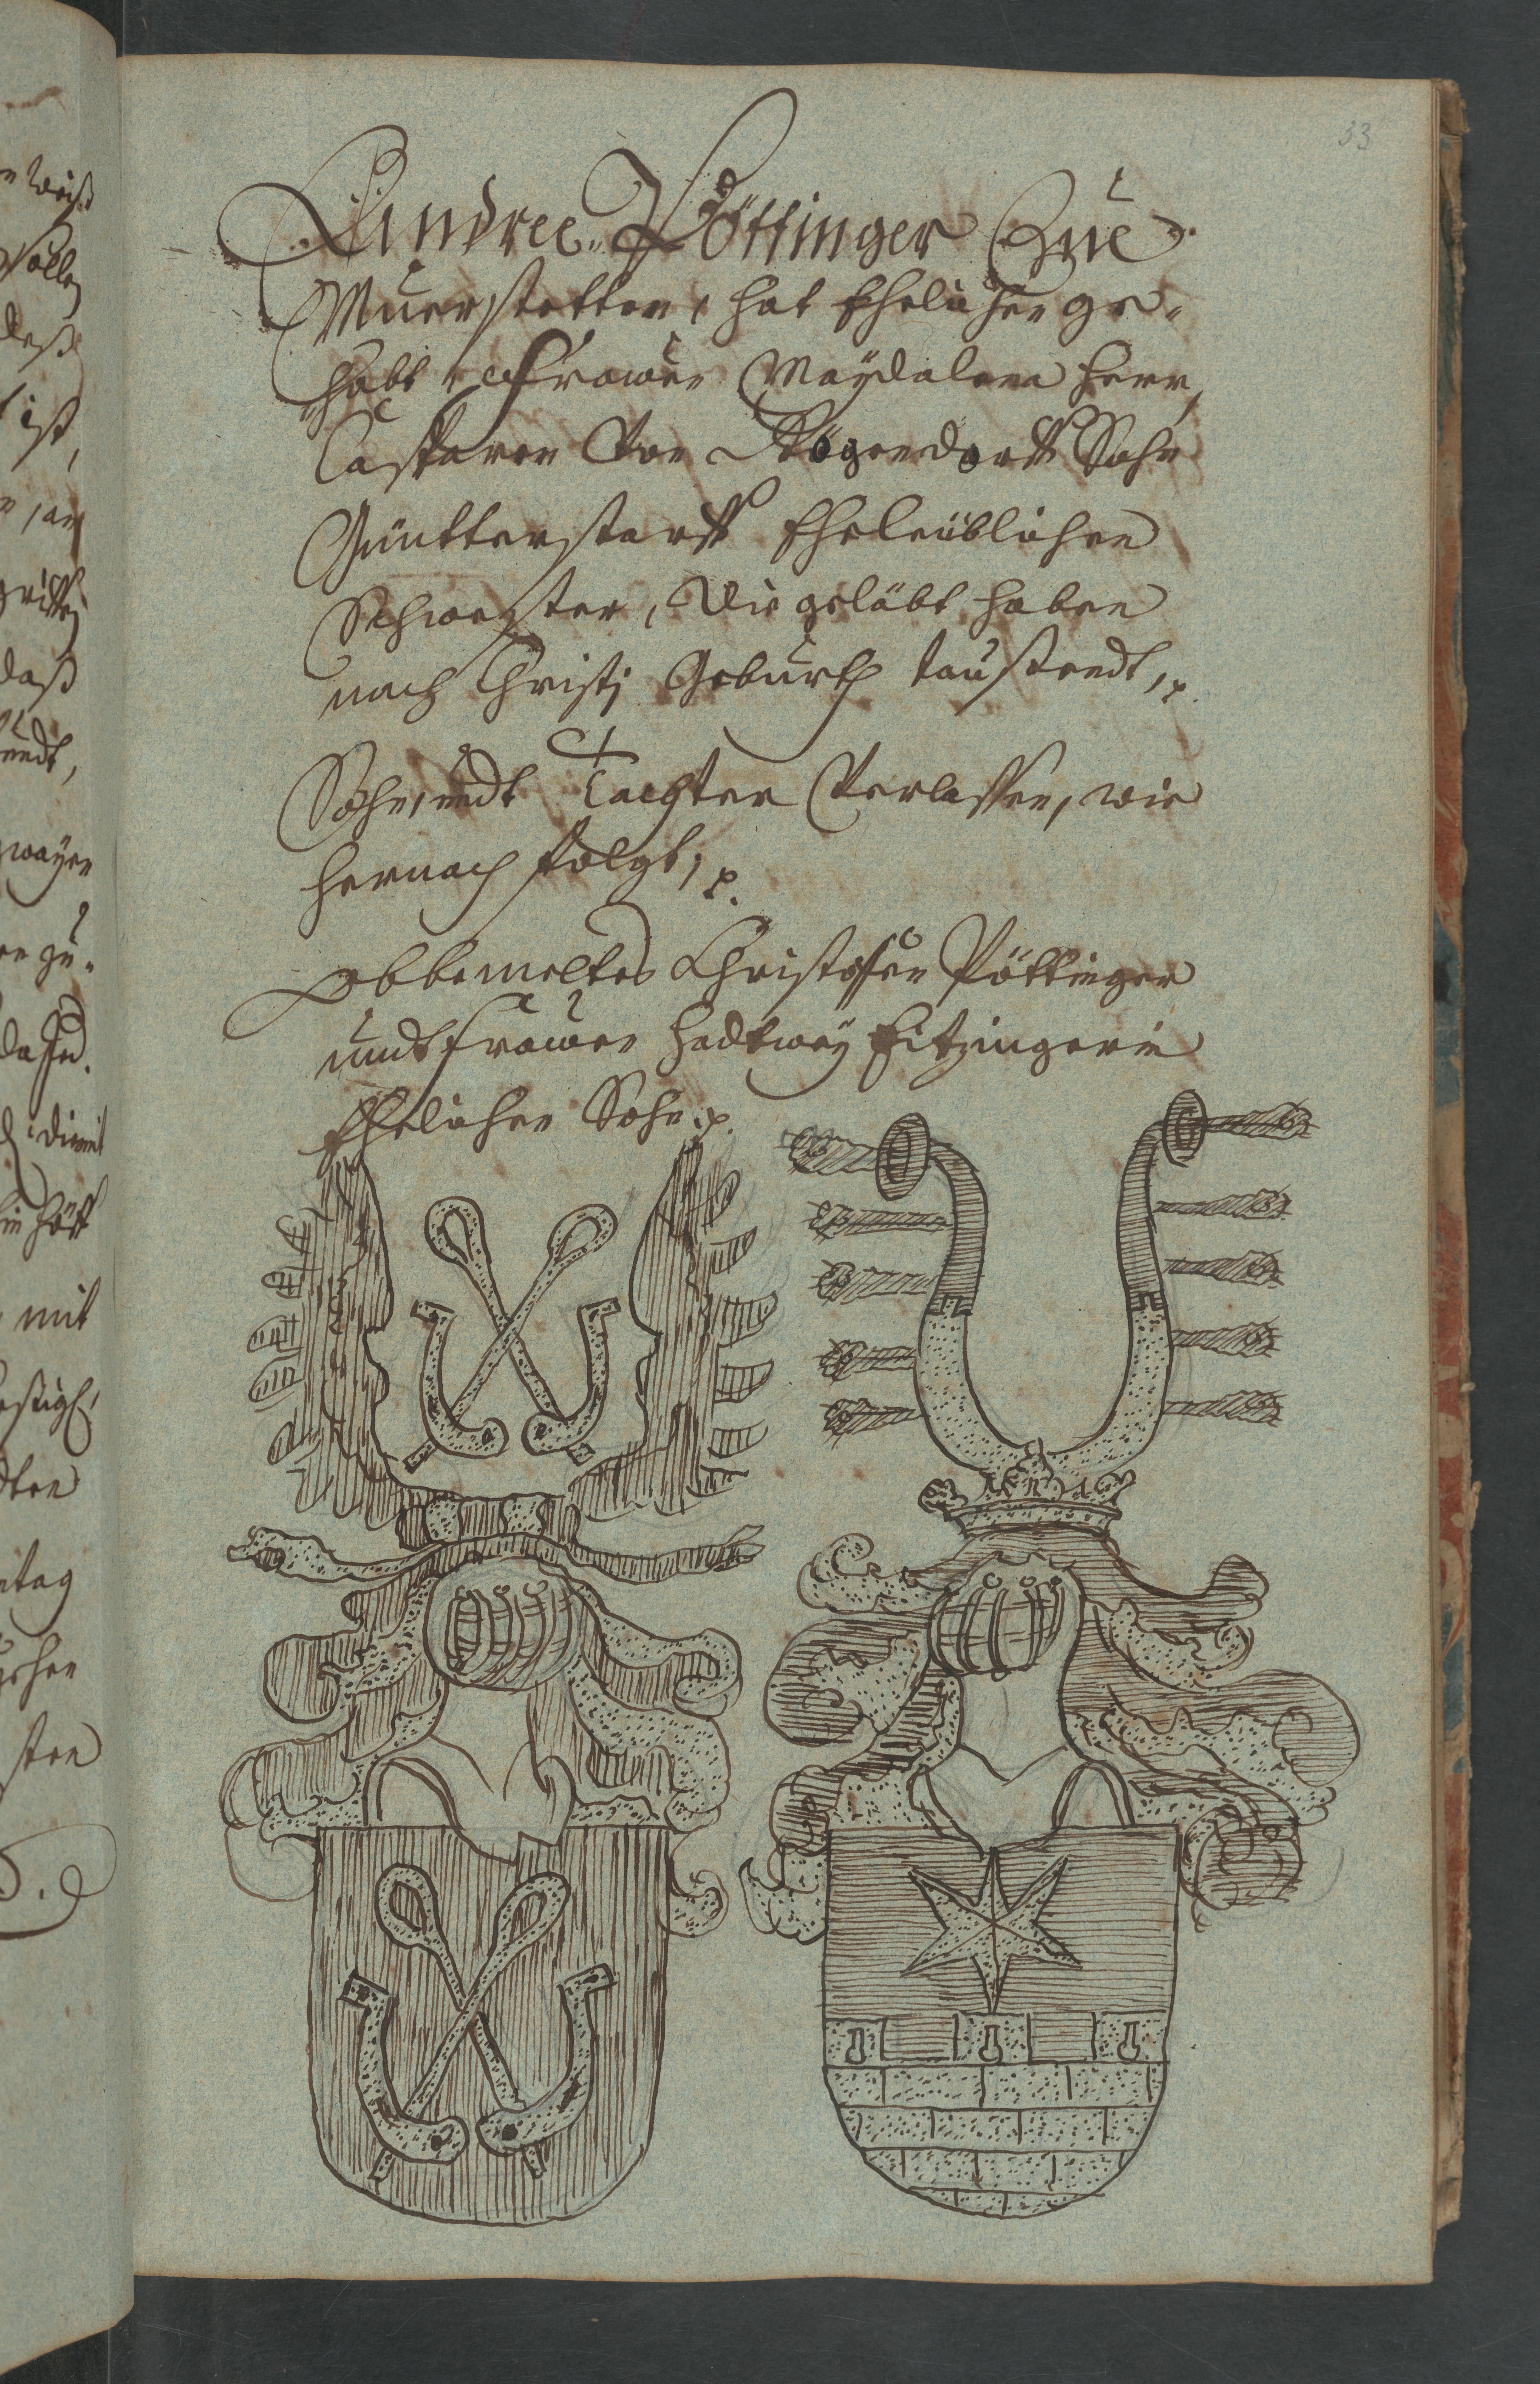 33
Andree Pöttinger Zue
Muerstetten, hat Ehelichen ge-
habt, Frawen Magdalena Herr,
Casparen Von Rögendorff Sohn
Güntterstorff Eheleüblichen
Schwester, Die geläbt haben
nach Christj Geburth taußendt, p.
Sohn, undt Tachter Verlassen, wie
hernach folgt, p.
Obbemeltes Christoffen Pöttinger
undt frawen Hedtwey Eitzingerin
Ehelicher Sohn. p.